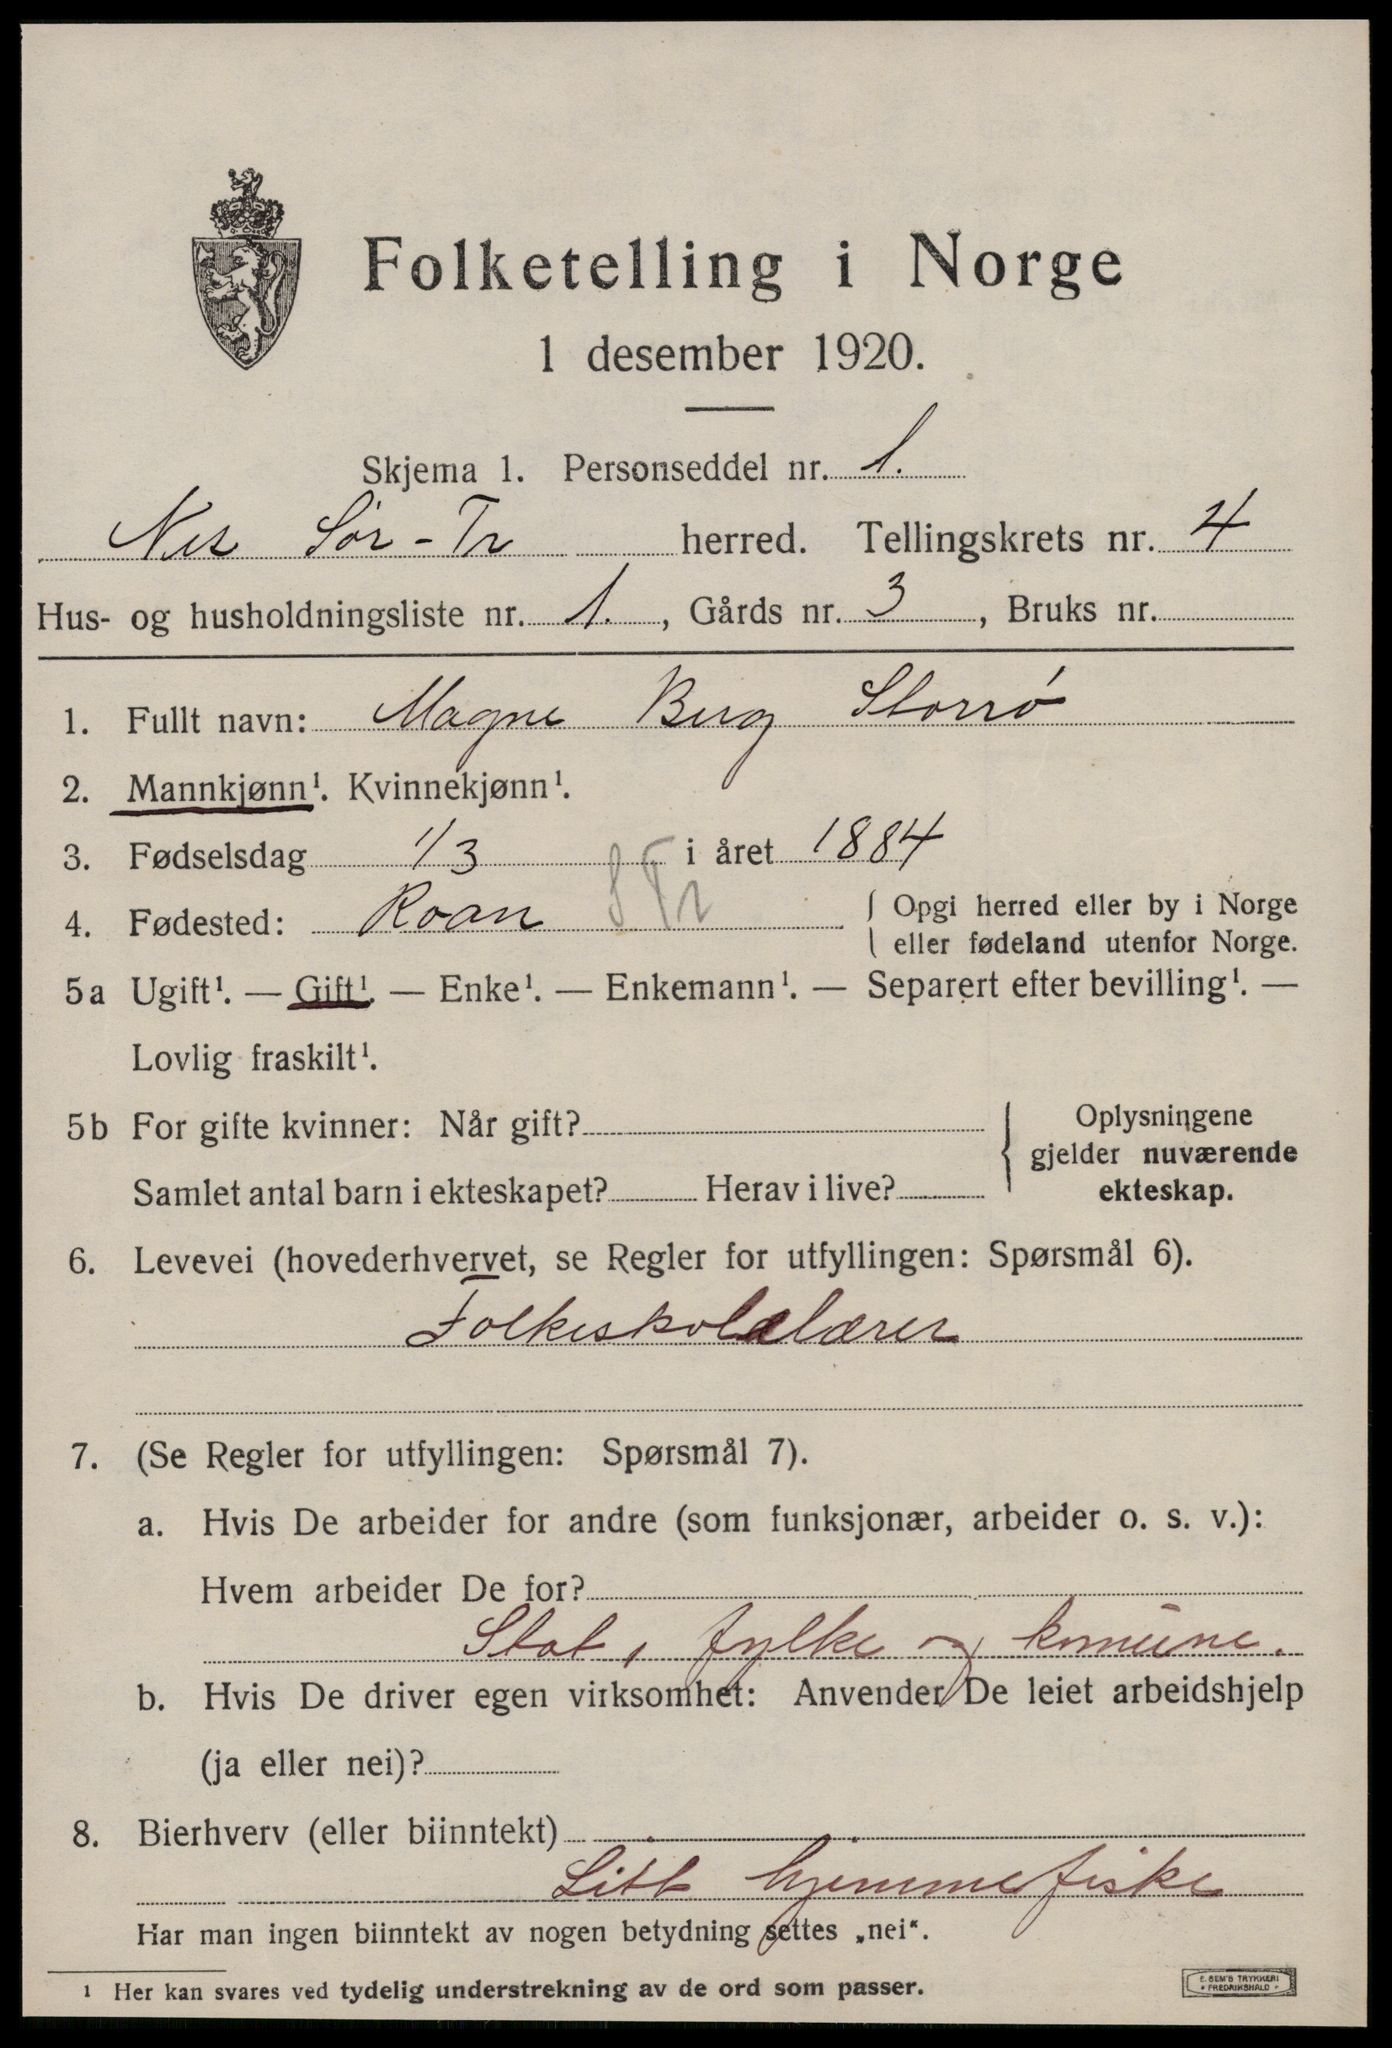 Folketelling i Norge
1 desember 1920.
Skjema 1. Personseddel nr. 1.
Nes Sør-Tr herred. Tellingskrets nr. 4
Hus- og husholdningsliste nr. 1., Gårds nr. 3, Bruks nr.
1. Fullt navn: Magne Berg Storrø
2. Mannkjønn¹. Kvinnekjønn¹.
3. Fødselsdag 1/3 i året 1884
4. Fødested: Roan S Tr { Opgi herred eller by i Norge
eller fødeland utenfor Norge.
5a Ugift¹. — Gift¹. — Enke¹. — Enkemann¹. — Separert efter bevilling¹. —
Lovlig fraskilt¹.
5b For gifte kvinner: Når gift? { Oplysningene
gjelder nuværende
Samlet antal barn i ekteskapet? Herav i live? ekteskap.
6. Levevei (hovederhvervet, se Regler for utfyllingen: Spørsmål 6).
Folkeskolelærer
7. (Se Regler for utfyllingen: Spørsmål 7).
a. Hvis De arbeider for andre (som funksjonær, arbeider o. s. v.):
Hvem arbeider De for?
Stat, fylke og komune.
b. Hvis De driver egen virksomhet: Anvender De leiet arbeidshjelp
(ja eller nei)?
8. Bierhverv (eller biinntekt)
Litt hjemmefiske
Har man ingen biinntekt av nogen betydning settes „nei“.
¹ Her kan svares ved tydelig understrekning av de ord som passer.
E. SEM'S TRYKKERI
* FREDRIKSHALD *